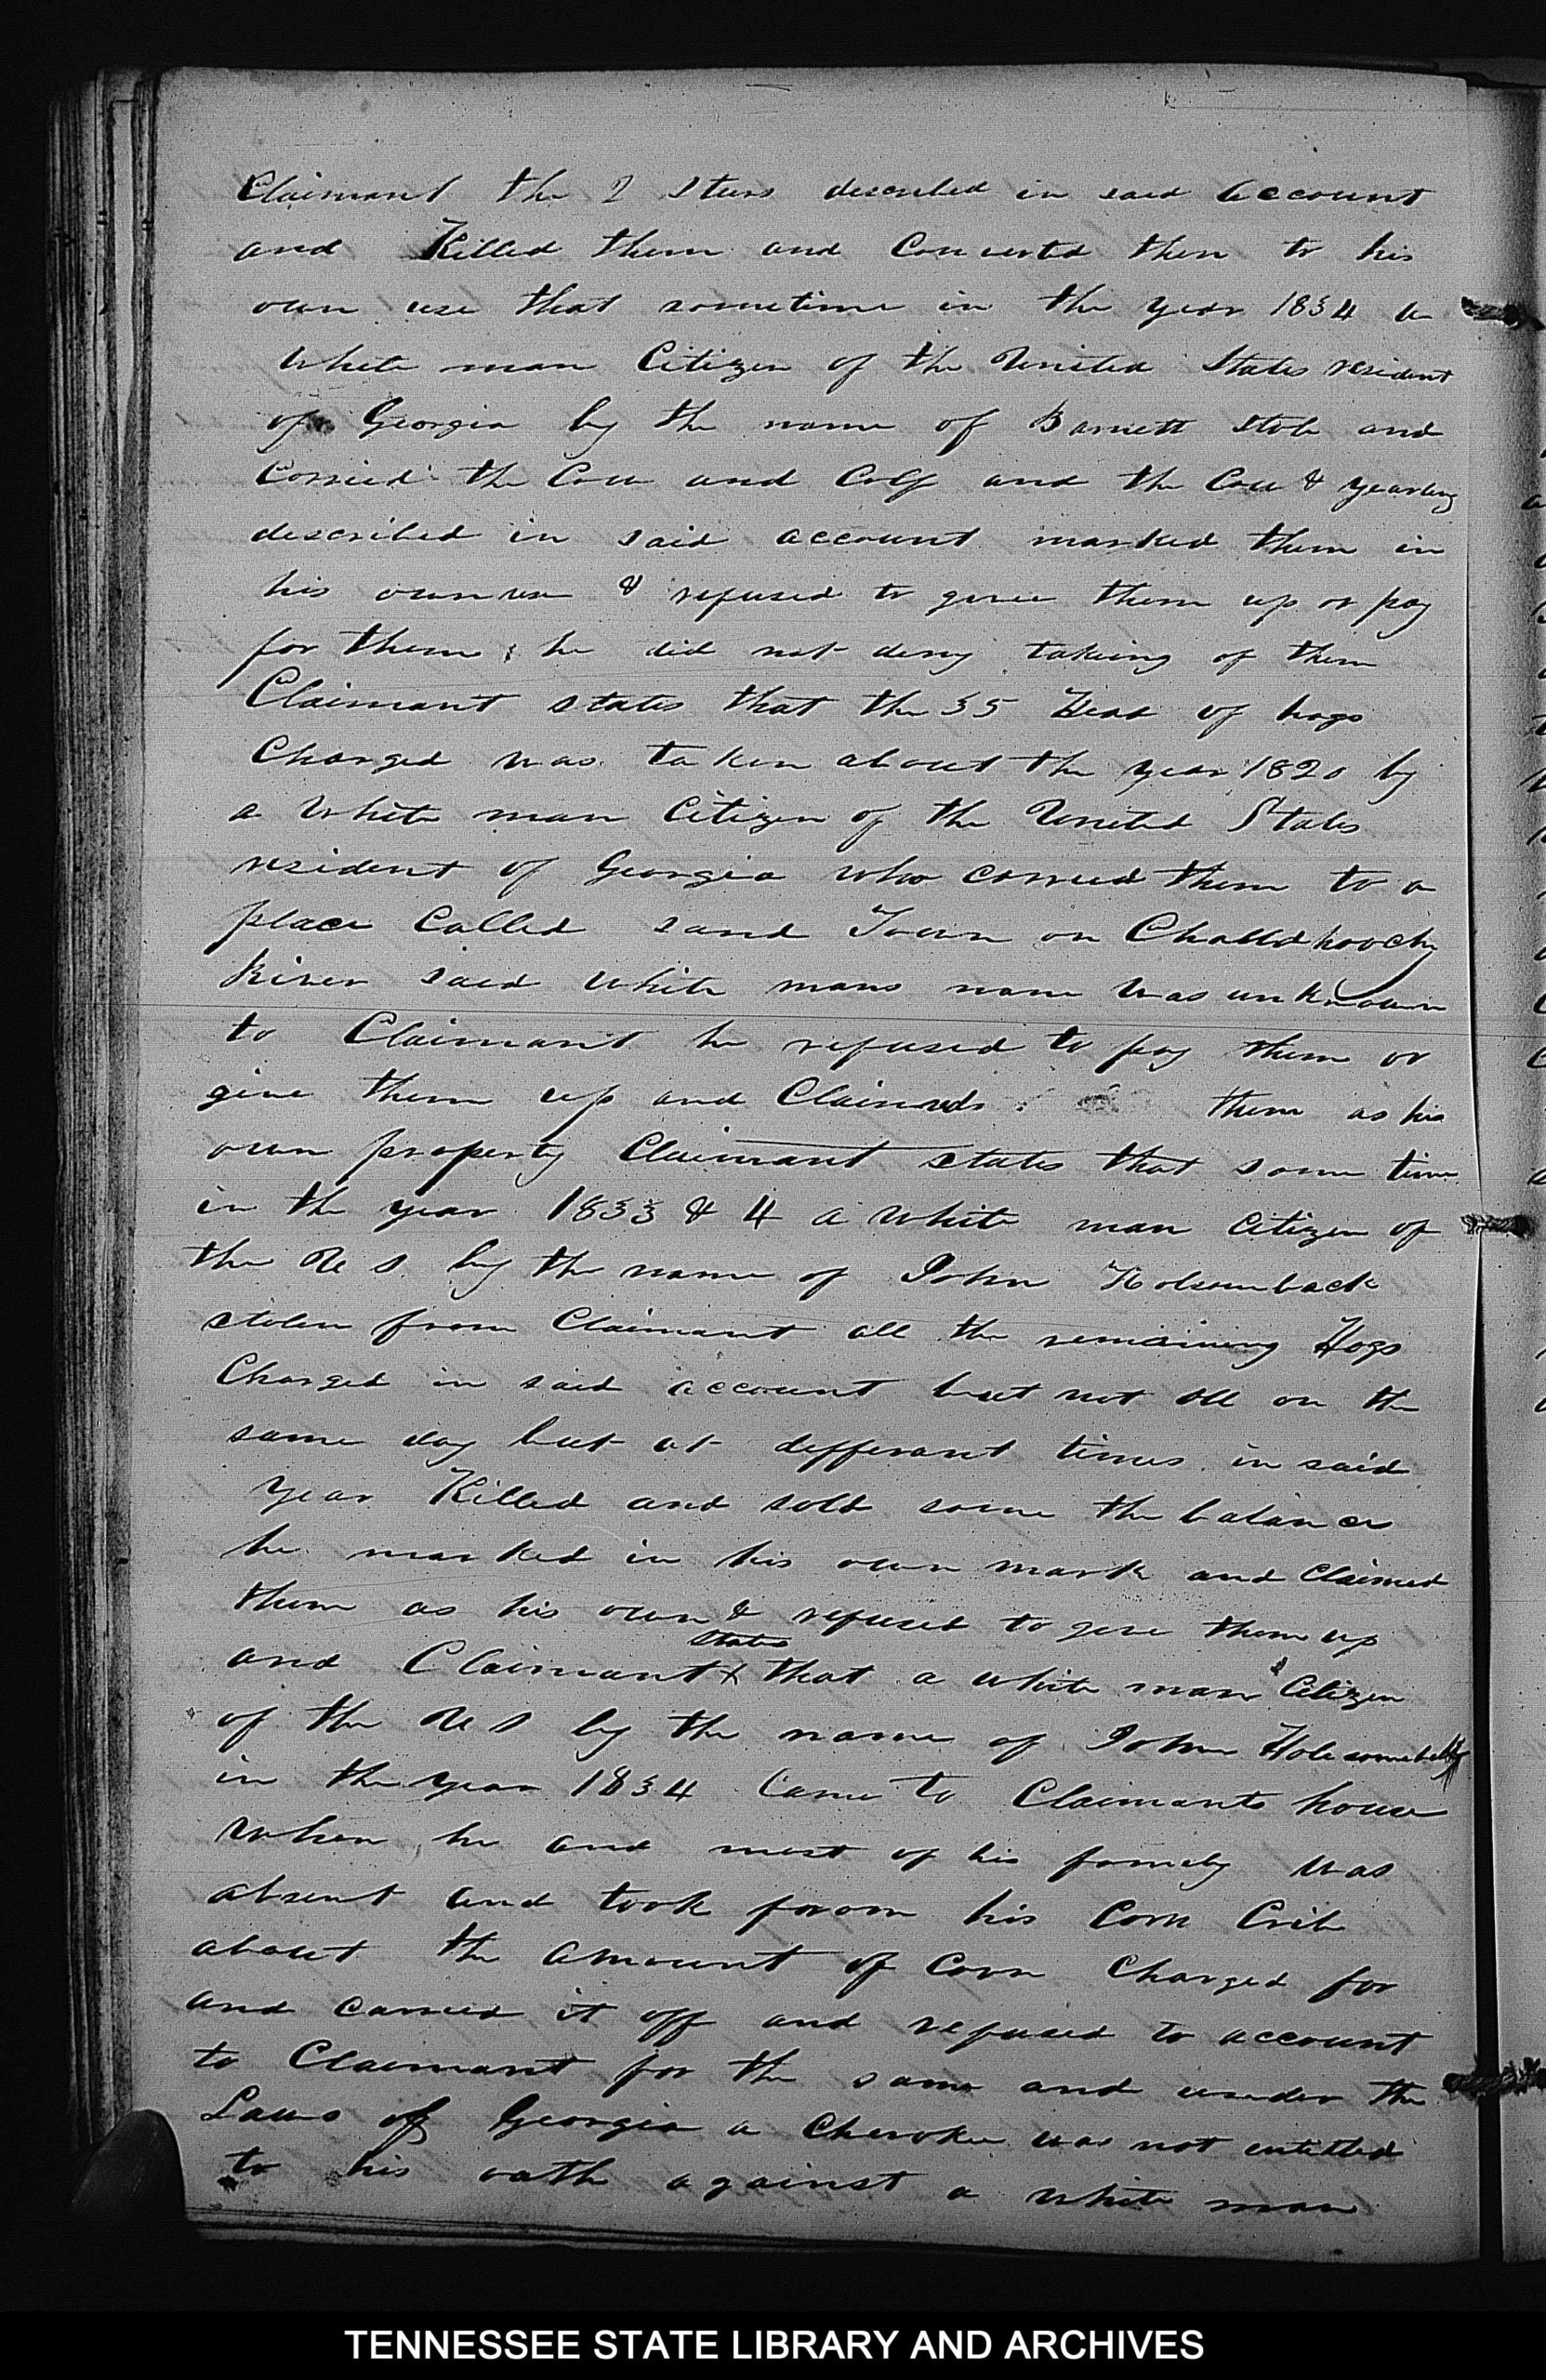 Claimant the 2 steers described in said account
and Killed them and Converted them to his
own use that sometime in the year 1834 a
White man Citizen of the United States resident
of Georgia by the name of Barnett stole and
Carried the Cow and Calf and the Cow & yearling
described in said account marked them in
his own use & refused to give them up or pay
for them; he did not deny taking of them
Claimant states that the 35 Head of hogs
Charged was taken about the year 1820 by
a White man Citizen of the United States
resident of Georgia who carried them to a
place Called Sand Town on Chattahoochy
River said White mans name was unknown
to Claimant he refused to pay them or
give them up and Claimed them as his
own property Claimant states that some time
in the year 1833 & 4 a White man Citizen of
the U S. by the name of John Holsumback
stolen from Claimant all the remaining Hogs
Charged in said account but not all on the
same day but at defferant times in said
year Killed and sold some the balance
he marked in his own mark and Claimed
them as his own & refused to give them up
and Claimant states that a white man Citizen
of the U S by the name of John
in the year 1834 Came to Claimants house
When he and most of his family was
absent and took from his Corn Crib
about the amount of Corn Charged for
and carried it off and refused to account
to Claimant for the same and under the
Laws of Georgia a Cherokee was not entitled
to his oath against a white man
TENNESSEE STATE LIBRARY AND ARCHIVES